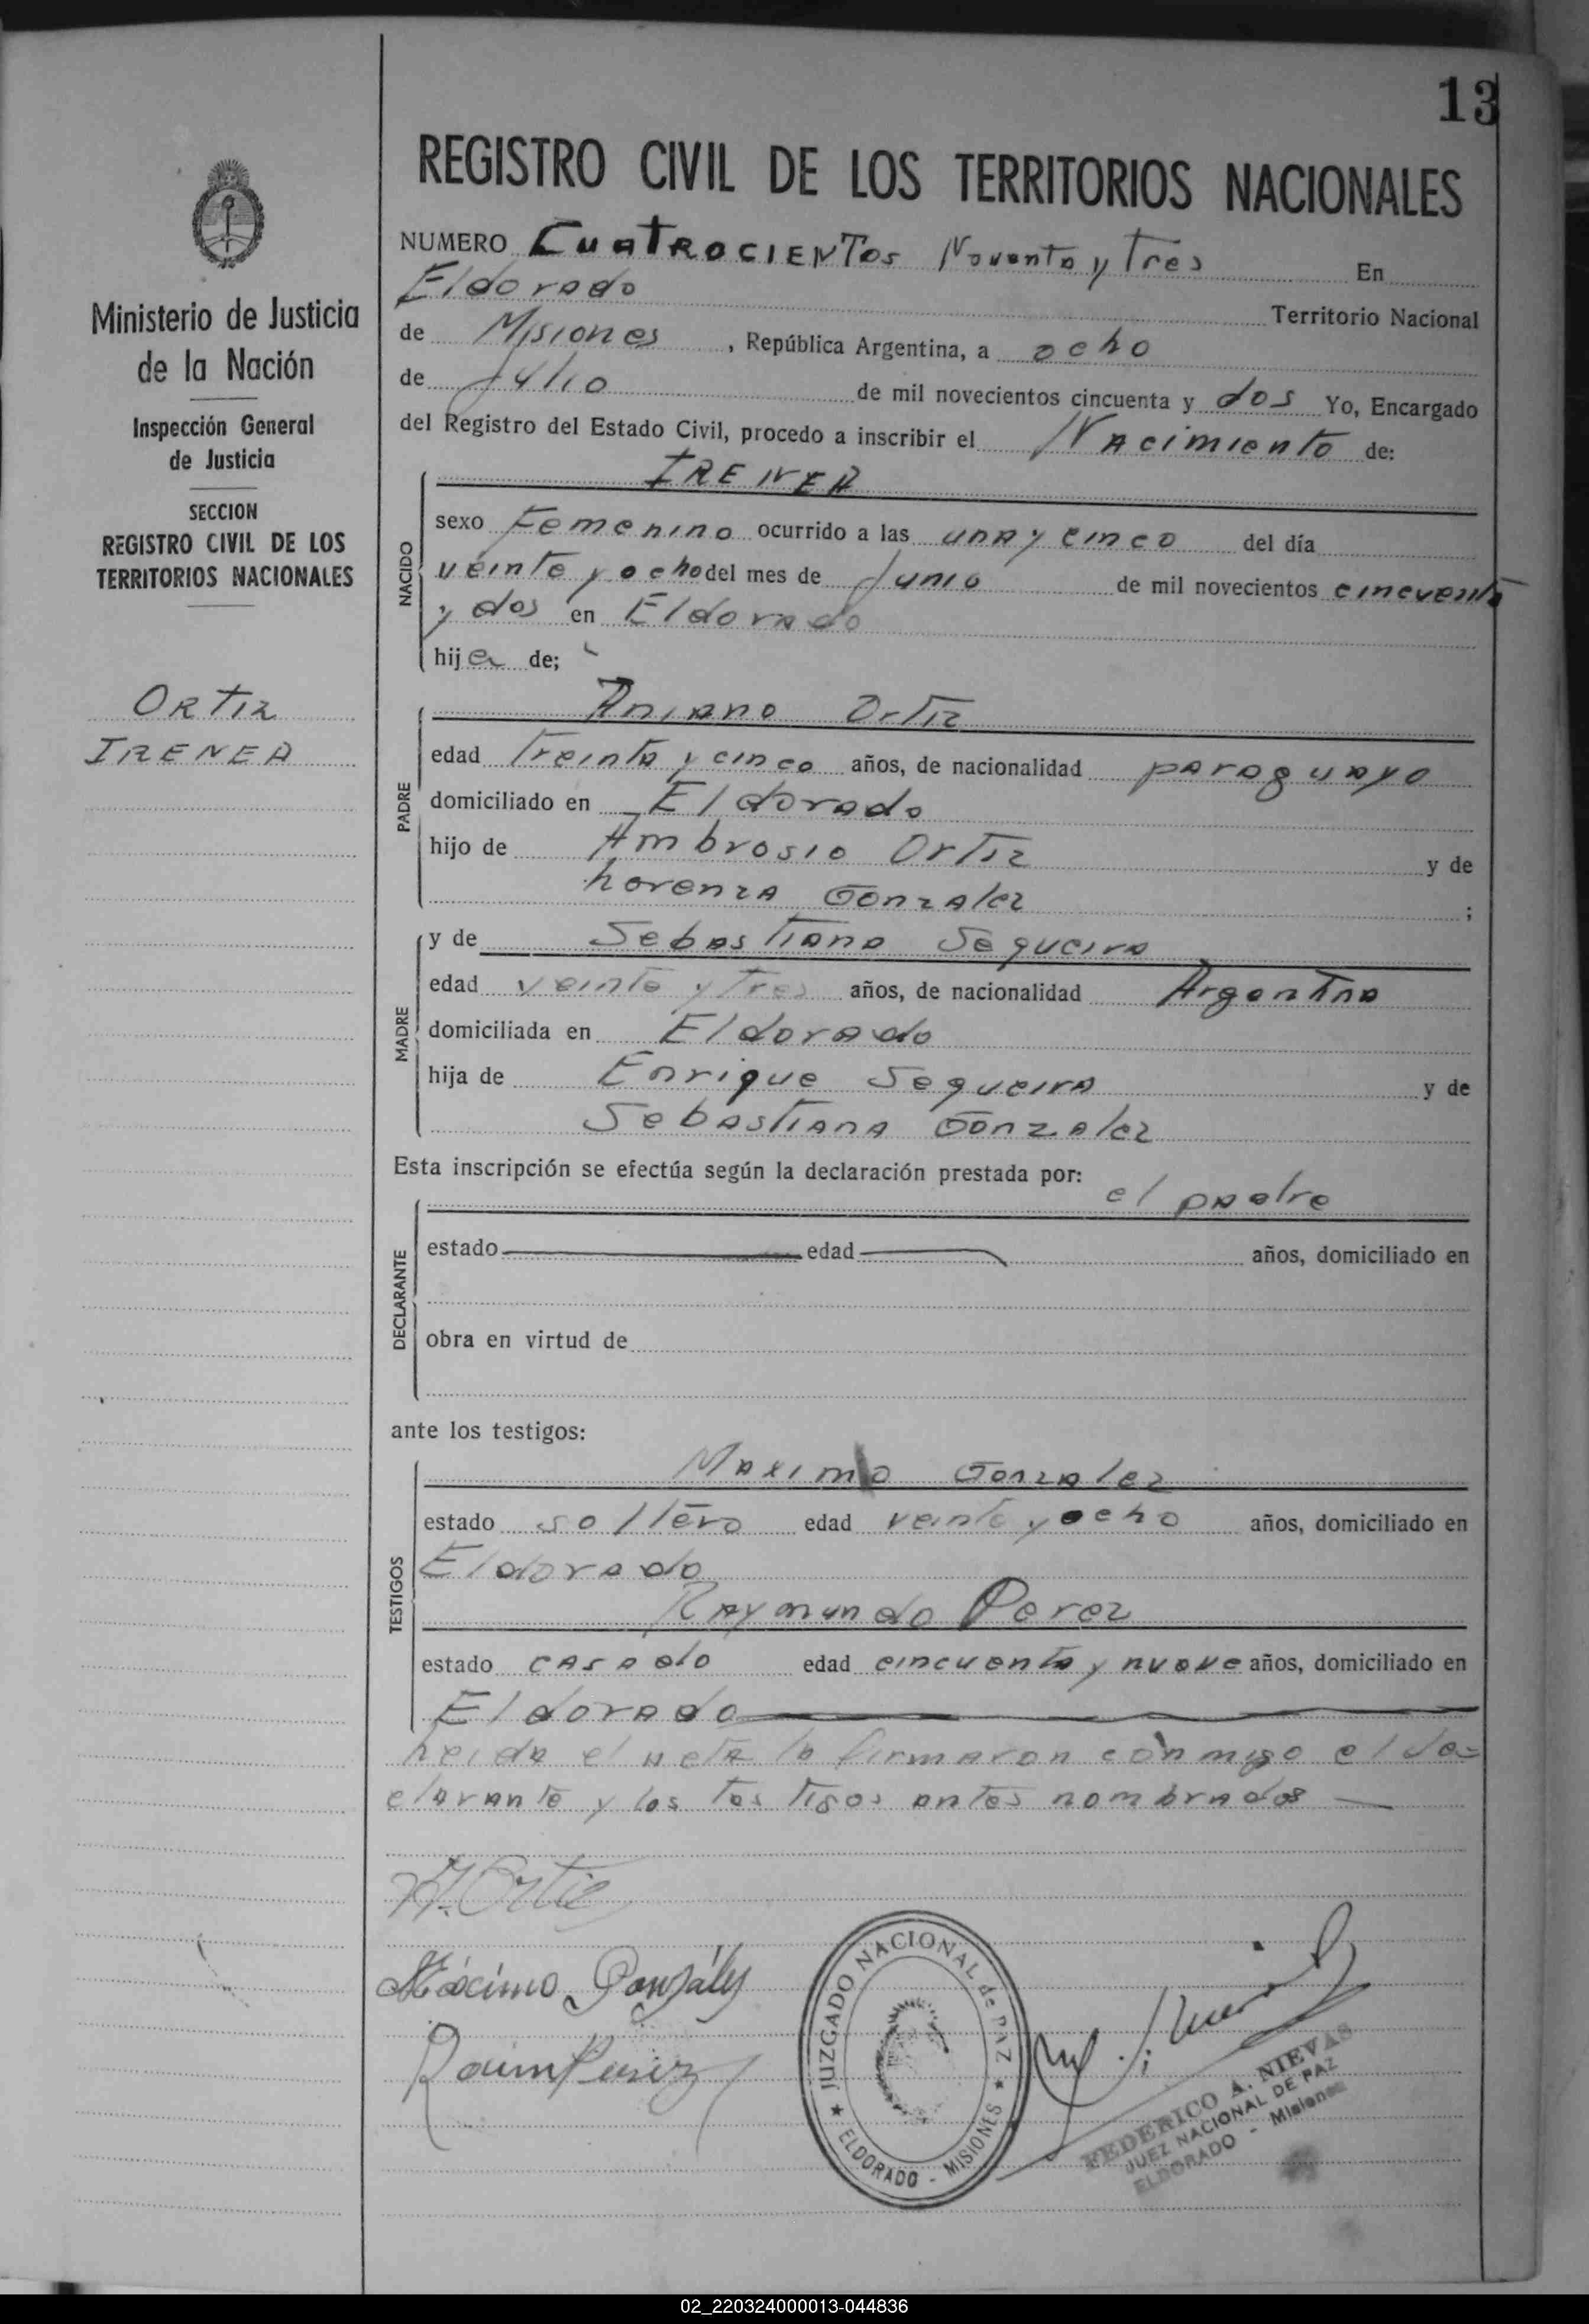 13
REGISTRO CIVIL DE LOS TERRITORIOS NACIONALES
NUMERO CUATROCIENTOS Noventa y Tres En
Eldorado Territorio Nacional
de Misiones, República Argentina, a ocho
de Julio de mil novecientos cincuenta y dos Yo, Encargado
del Registro del Estado Civil, procedo a inscribir el Nacimiento de:
Ministerio de Justicia
de la Nación
Inspección General
de Justicia
SECCION
REGISTRO CIVIL DE LOS
TERRITORIOS NACIONALES
ORTIZ
IRENEA
NACIDO
IRENEA
sexo Femenino ocurrido a las una y cinco del día
veinte y ocho del mes de Junio de mil novecientos cincuenta
y dos en Eldorado
hija de;
PADRE
Aniano Ortiz
edad Treinta y cinco años, de nacionalidad paraguayo
domiciliado en Eldorado
hijo de Ambrosio Ortiz y de
Lorenza Gonzalez ;
MADRE
y de Sebastiana Sequeira
edad veinte y tres años, de nacionalidad Argentina
domiciliada en Eldorado
hija de Enrique Sequeira y de
Sebastiana Gonzalez
Esta inscripción se efectúa según la declaración prestada por:
el padre
DECLARANTE
estado edad años, domiciliado en
obra en virtud de
ante los testigos:
TESTIGOS
Maximo Gonzalez
estado soltero edad veinte y ocho años, domiciliado en
Eldorado
Raymundo Perez
estado casado edad cincuenta y nueve años, domiciliado en
Eldorado
Leida el acta la firmaron conmigo el de=
clarante y los testigos antes nombrados
A. Ortiz
Máximo Gonzáles
JUZGADO NACIONAL de PAZ
ELDORADO - MISIONES
FEDERICO A. NIEVAS
JUEZ NACIONAL DE PAZ
ELDORADO - Misiones
02_220324000013-044836